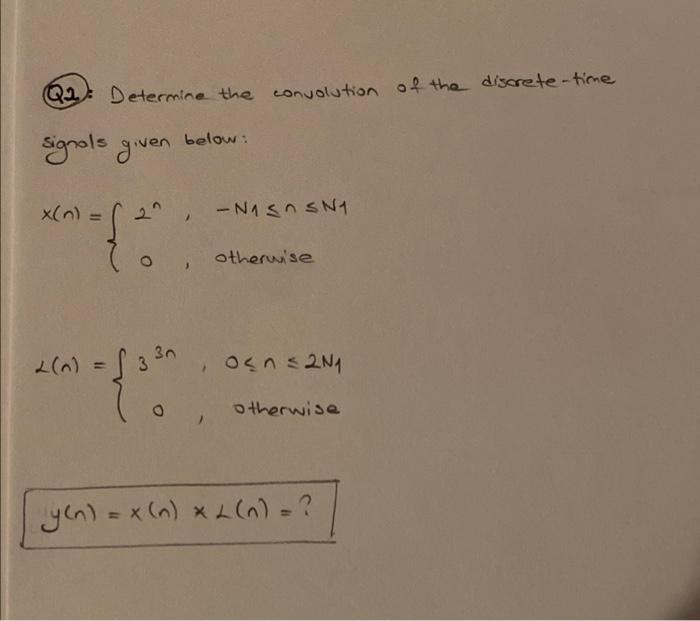 Q2: Determine the convolution of the discrete-time
signals given below:
x(n) = { 2^n , -N1 ≤ n ≤ N1
0 , otherwise
L(n) = { 3^3n , 0 ≤ n ≤ 2N1
0 , otherwise
y(n) = x(n) * L(n) = ?